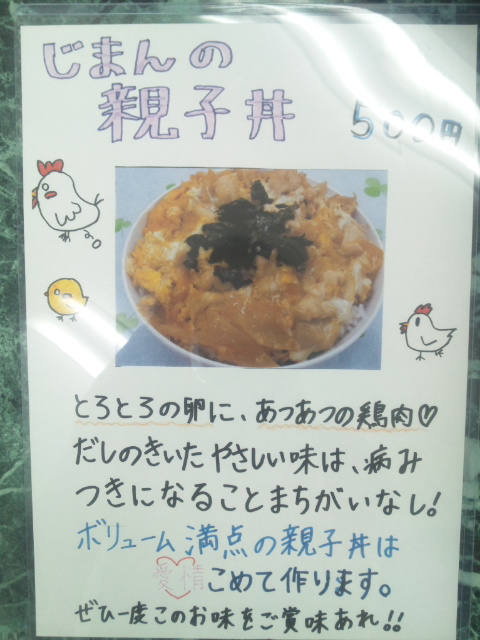 じまんの
親子丼 500円
とろとろの卵に、あつあつの鶏肉♡
だしのきいたやさしい味は、病み
つきになることまちがいなし!
ボリューム満点の親子丼は
愛情こめて作ります。
ぜひ一度このお味をご賞味あれ!!